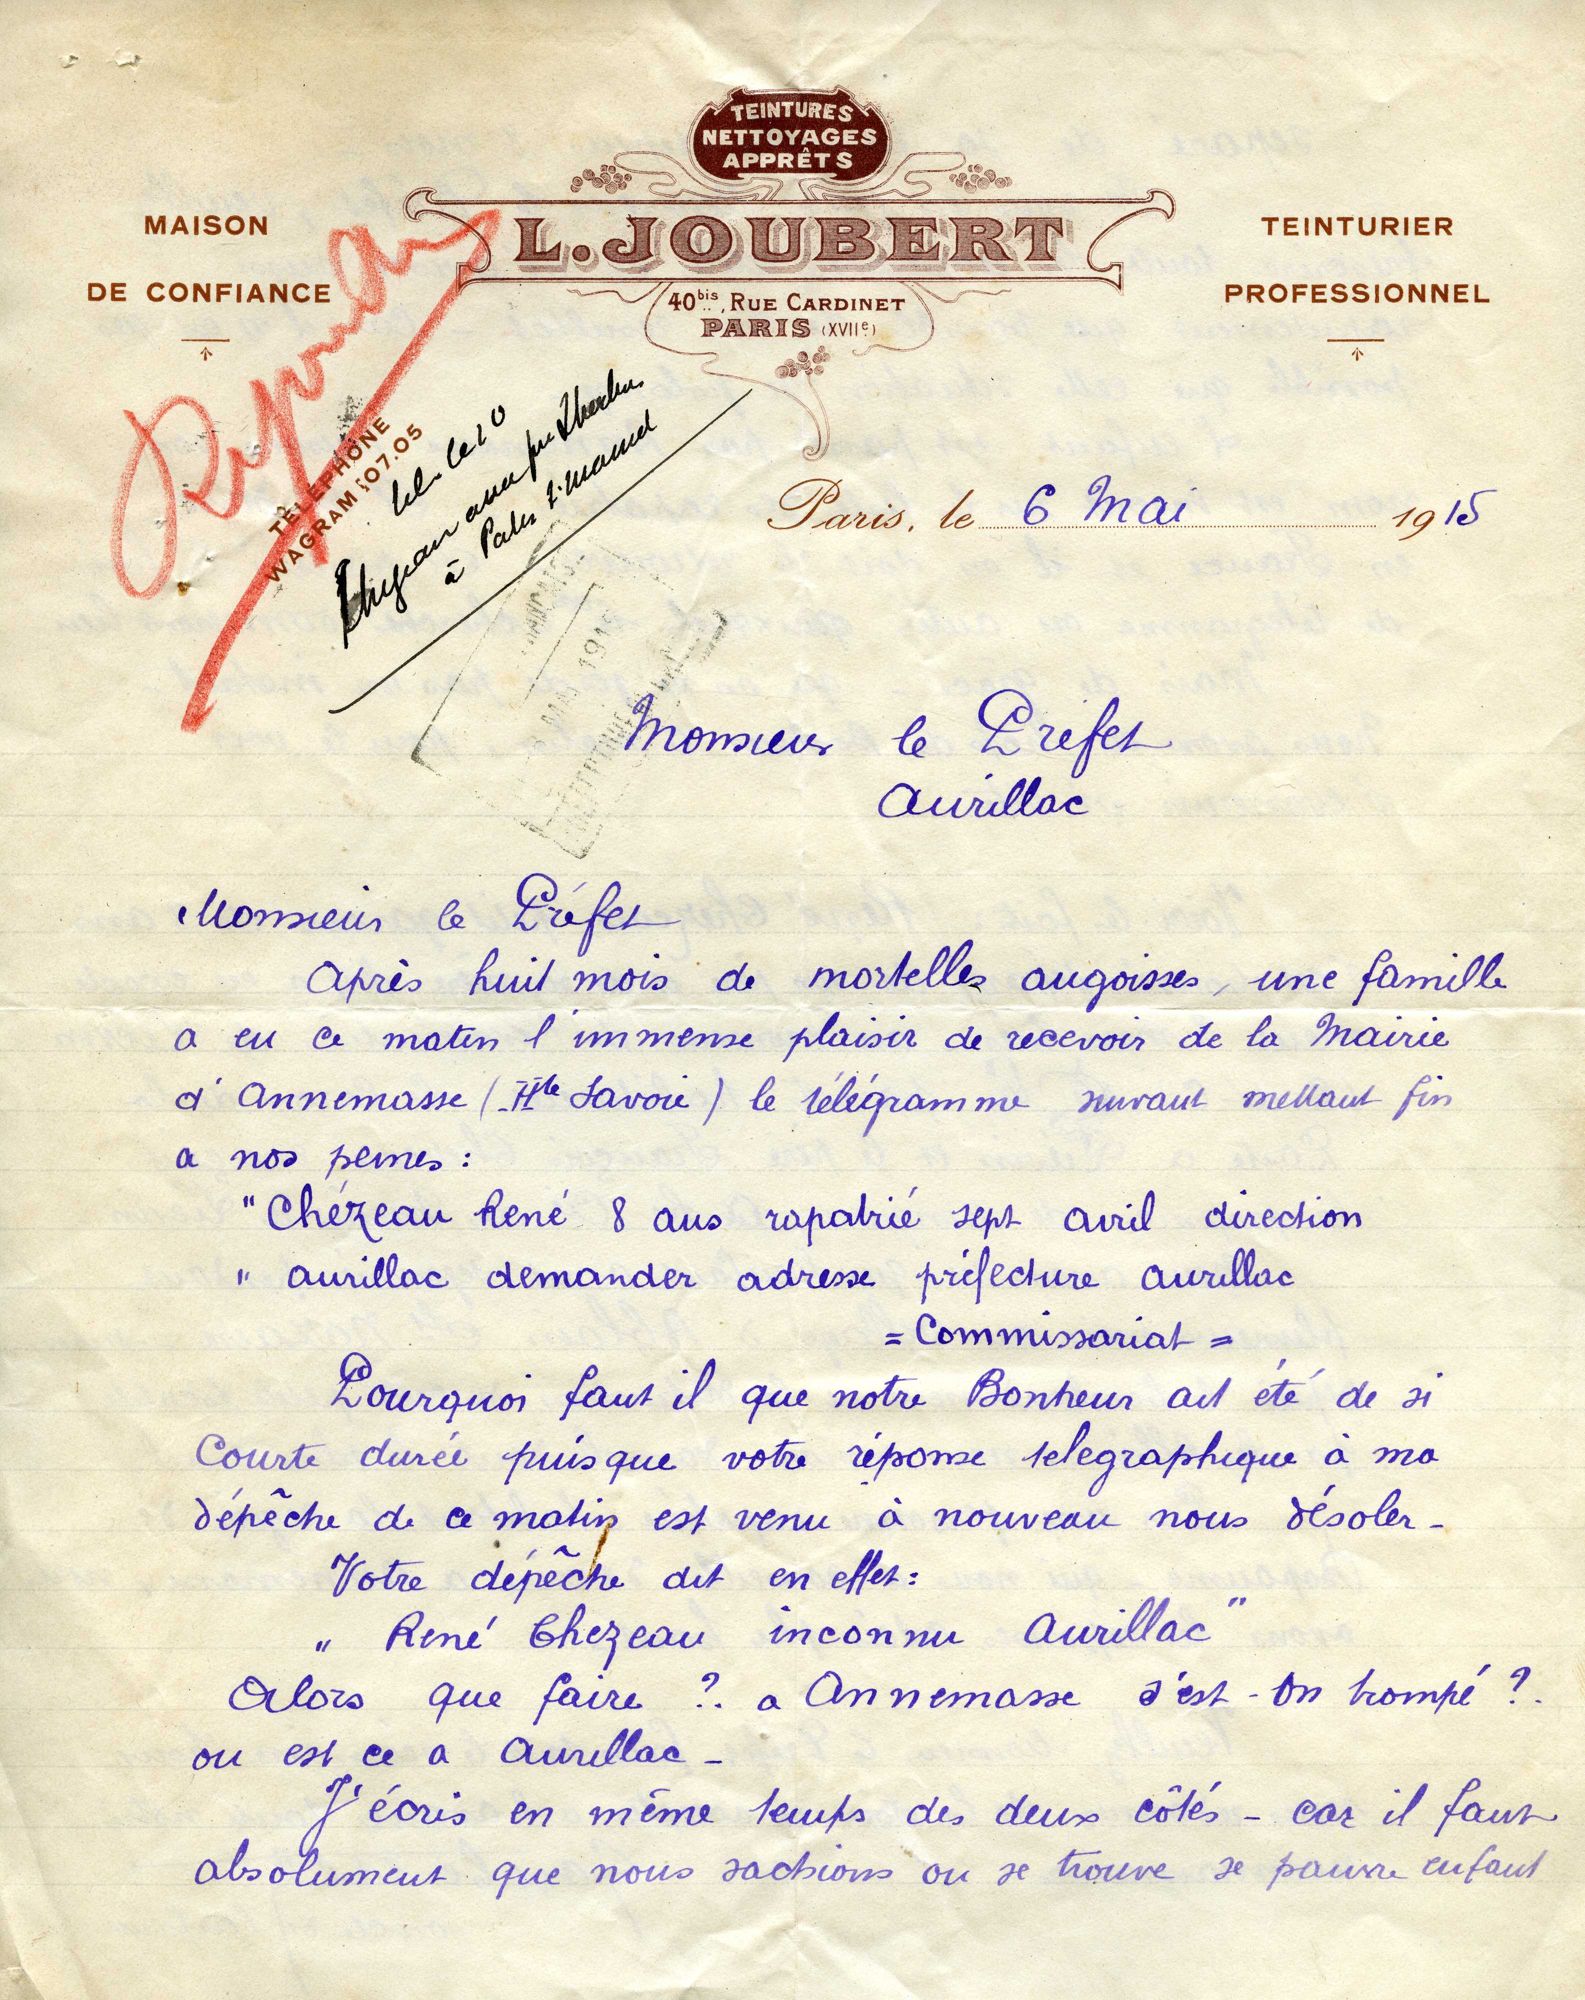 TEINTURES
NETTOYAGES
APPRÊTS
L. JOUBERT
40bis, RUE CARDINET
PARIS (XVIIe)
MAISON
DE CONFIANCE
TEINTURIER
PROFESSIONNEL
TÉLÉPHONE
WAGRAM 07.05
à
Paris, le 6 Mai 1915
Monsieur le Préfet
Aurillac
Monsieur le Préfet
Après huit mois de mortelles angoisses, une famille
a eu ce matin l'immense plaisir de recevoir de la Mairie
d'Annemasse (Hte Savoie) le télégramme suivant mettant fin
a nos peines :
"Chézeau René 8 ans rapatrié sept avril direction
" aurillac demander adresse préfecture aurillac
= Commissariat =
Pourquoi faut il que notre Bonheur ait été de si
Courte durée puisque votre réponse telegraphique à ma
dépêche de ce matin est venu à nouveau nous désoler -
Votre dépêche dit en effet :
" René Chezeau inconnu Aurillac "
Alors que faire ?. a Annemasse s'est-on trompé ?.
ou est ce a Aurillac -
J'écris en même temps des deux côtés - car il faut
absolument que nous sachions ou se trouve se pauvre enfant